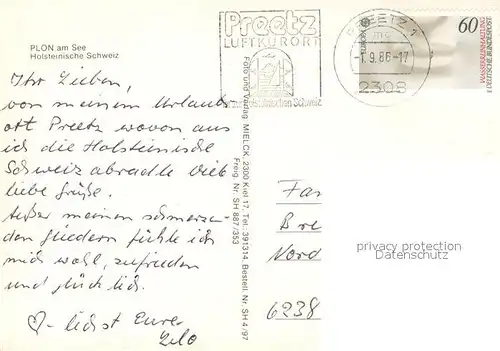 PLON am See
Holsteinische Schweiz
Ihr Lieben,
von meinem Urlaubs
ort Preetz wovon aus
ich die Holsteinische
Schweiz abradle viele
liebe Grüße.
Außer meinen schmerzen-
den Gliedern fühle ich
mich wohl, zufrieden
und glücklich.
♡-lichst Eure
Foto und Verlag MIELCK, 2300 Kiel 17, Tel.: 391314, Bestell. Nr. SH 4/97
Freig. Nr. SH 887/353
Preetz
LUFTKURORT
Holsteinischen Schweiz
PREETZ 1
-1.9.86-17
2308
60
DEUTSCHE BUNDESPOST
EUROPA
Fam
Bre
Nord
6238
privacy protection
Datenschutz